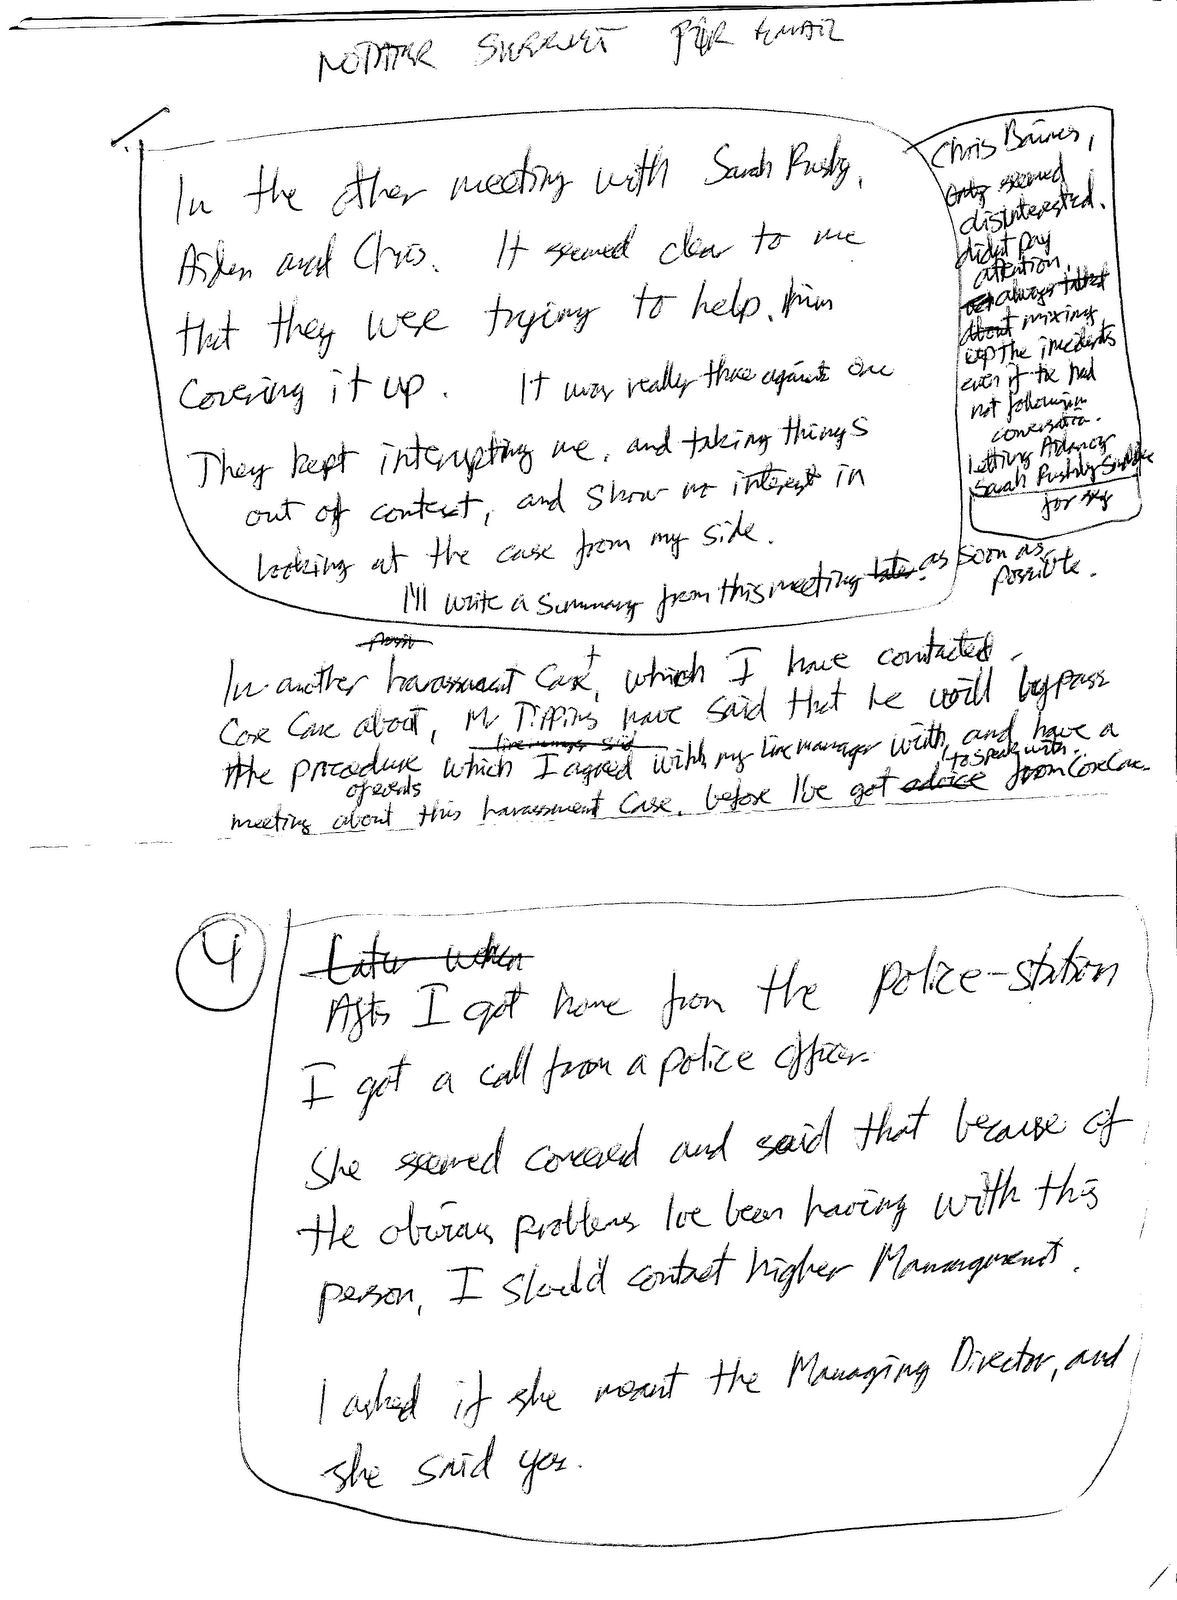 FOR EMAIL
In the other meeting with Sarah Rushby,
Aiden and Chris. It seemed clear to me
that they were trying to help him
Covering it up. It was really three against one
They kept interupting me, and taking things
out of context, and show no interest in
looking at the case from my side.
I'll write a summary from this meeting later as soon as
possible.
Chris Baines,
Only seemed
disinterested.
didnt pay
attention,
always talked
about mixing
up the incidents
even if he had
not following
conversation.
Letting
Sarah Rushby
for
In another harassment Case, which I have contacted
Core Care about, Mr Tipping have said that he will bypass
line manager said
the procedure which I agreed with my line manager with, and have a
of events to speak with
meeting about this harassment Case, before I've got advice from CoreCare.
4
Later when
After I got home from the Police-station
I got a call from a police officer.
She seemed concered and said that because of
the obvious problems I've been having with this
person, I should contact higher Management.
I asked if she meant the Managing Director, and
she said yes.